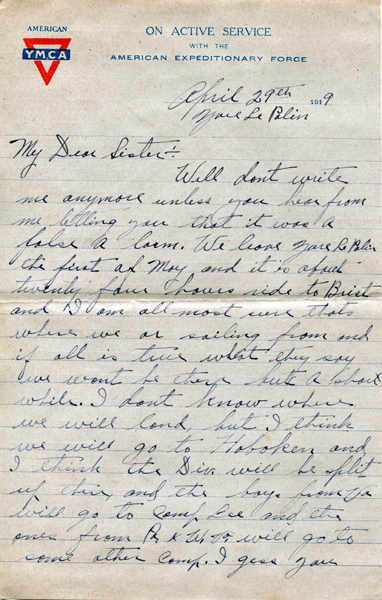 AMERICAN
YMCA
ON ACTIVE SERVICE
WITH THE
AMERICAN EXPEDITIONARY FORCE
April 29th 1919
My Dear Sister:
Well dont write
me anymore unless you hear from
me letting you that it was a
false a larm. We leave
the first of May and it is about
twenty four hours ride to Brest
and I am all most sure thats
where we ar sailing from and
if all is true what they say
we wont be there but a short
while. I dont know where
we will land but I think
we will go to Hoboken and
I think the Div. will be split
up their and the boys from Va
will go to Camp Lee and the
ones from Pa & W. Va will go to
some other camp. I gess